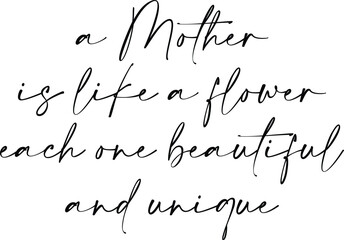 a Mother
is like a flower
each one beautiful
and unique